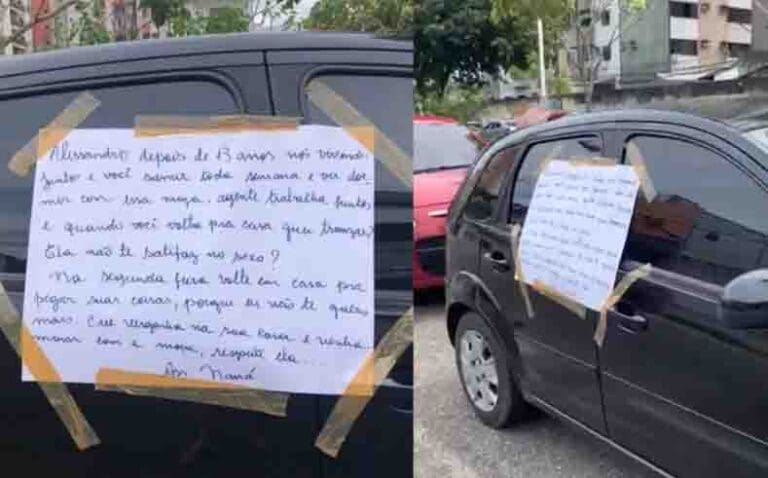 Alessandro depois de 13 anos nós vivendo
junto e você sumir toda semana e vir dor
mir com essa moça. agente trabalha juntos
e quando você volta pra casa quer transar?
Ela não te satifaz no sexo?
Na segunda feira volte em casa pra
pegar suas coisas, porque eu não te quero
mais. Crie vergonha na sua cara e venha
morar com a moça, respeite ela...